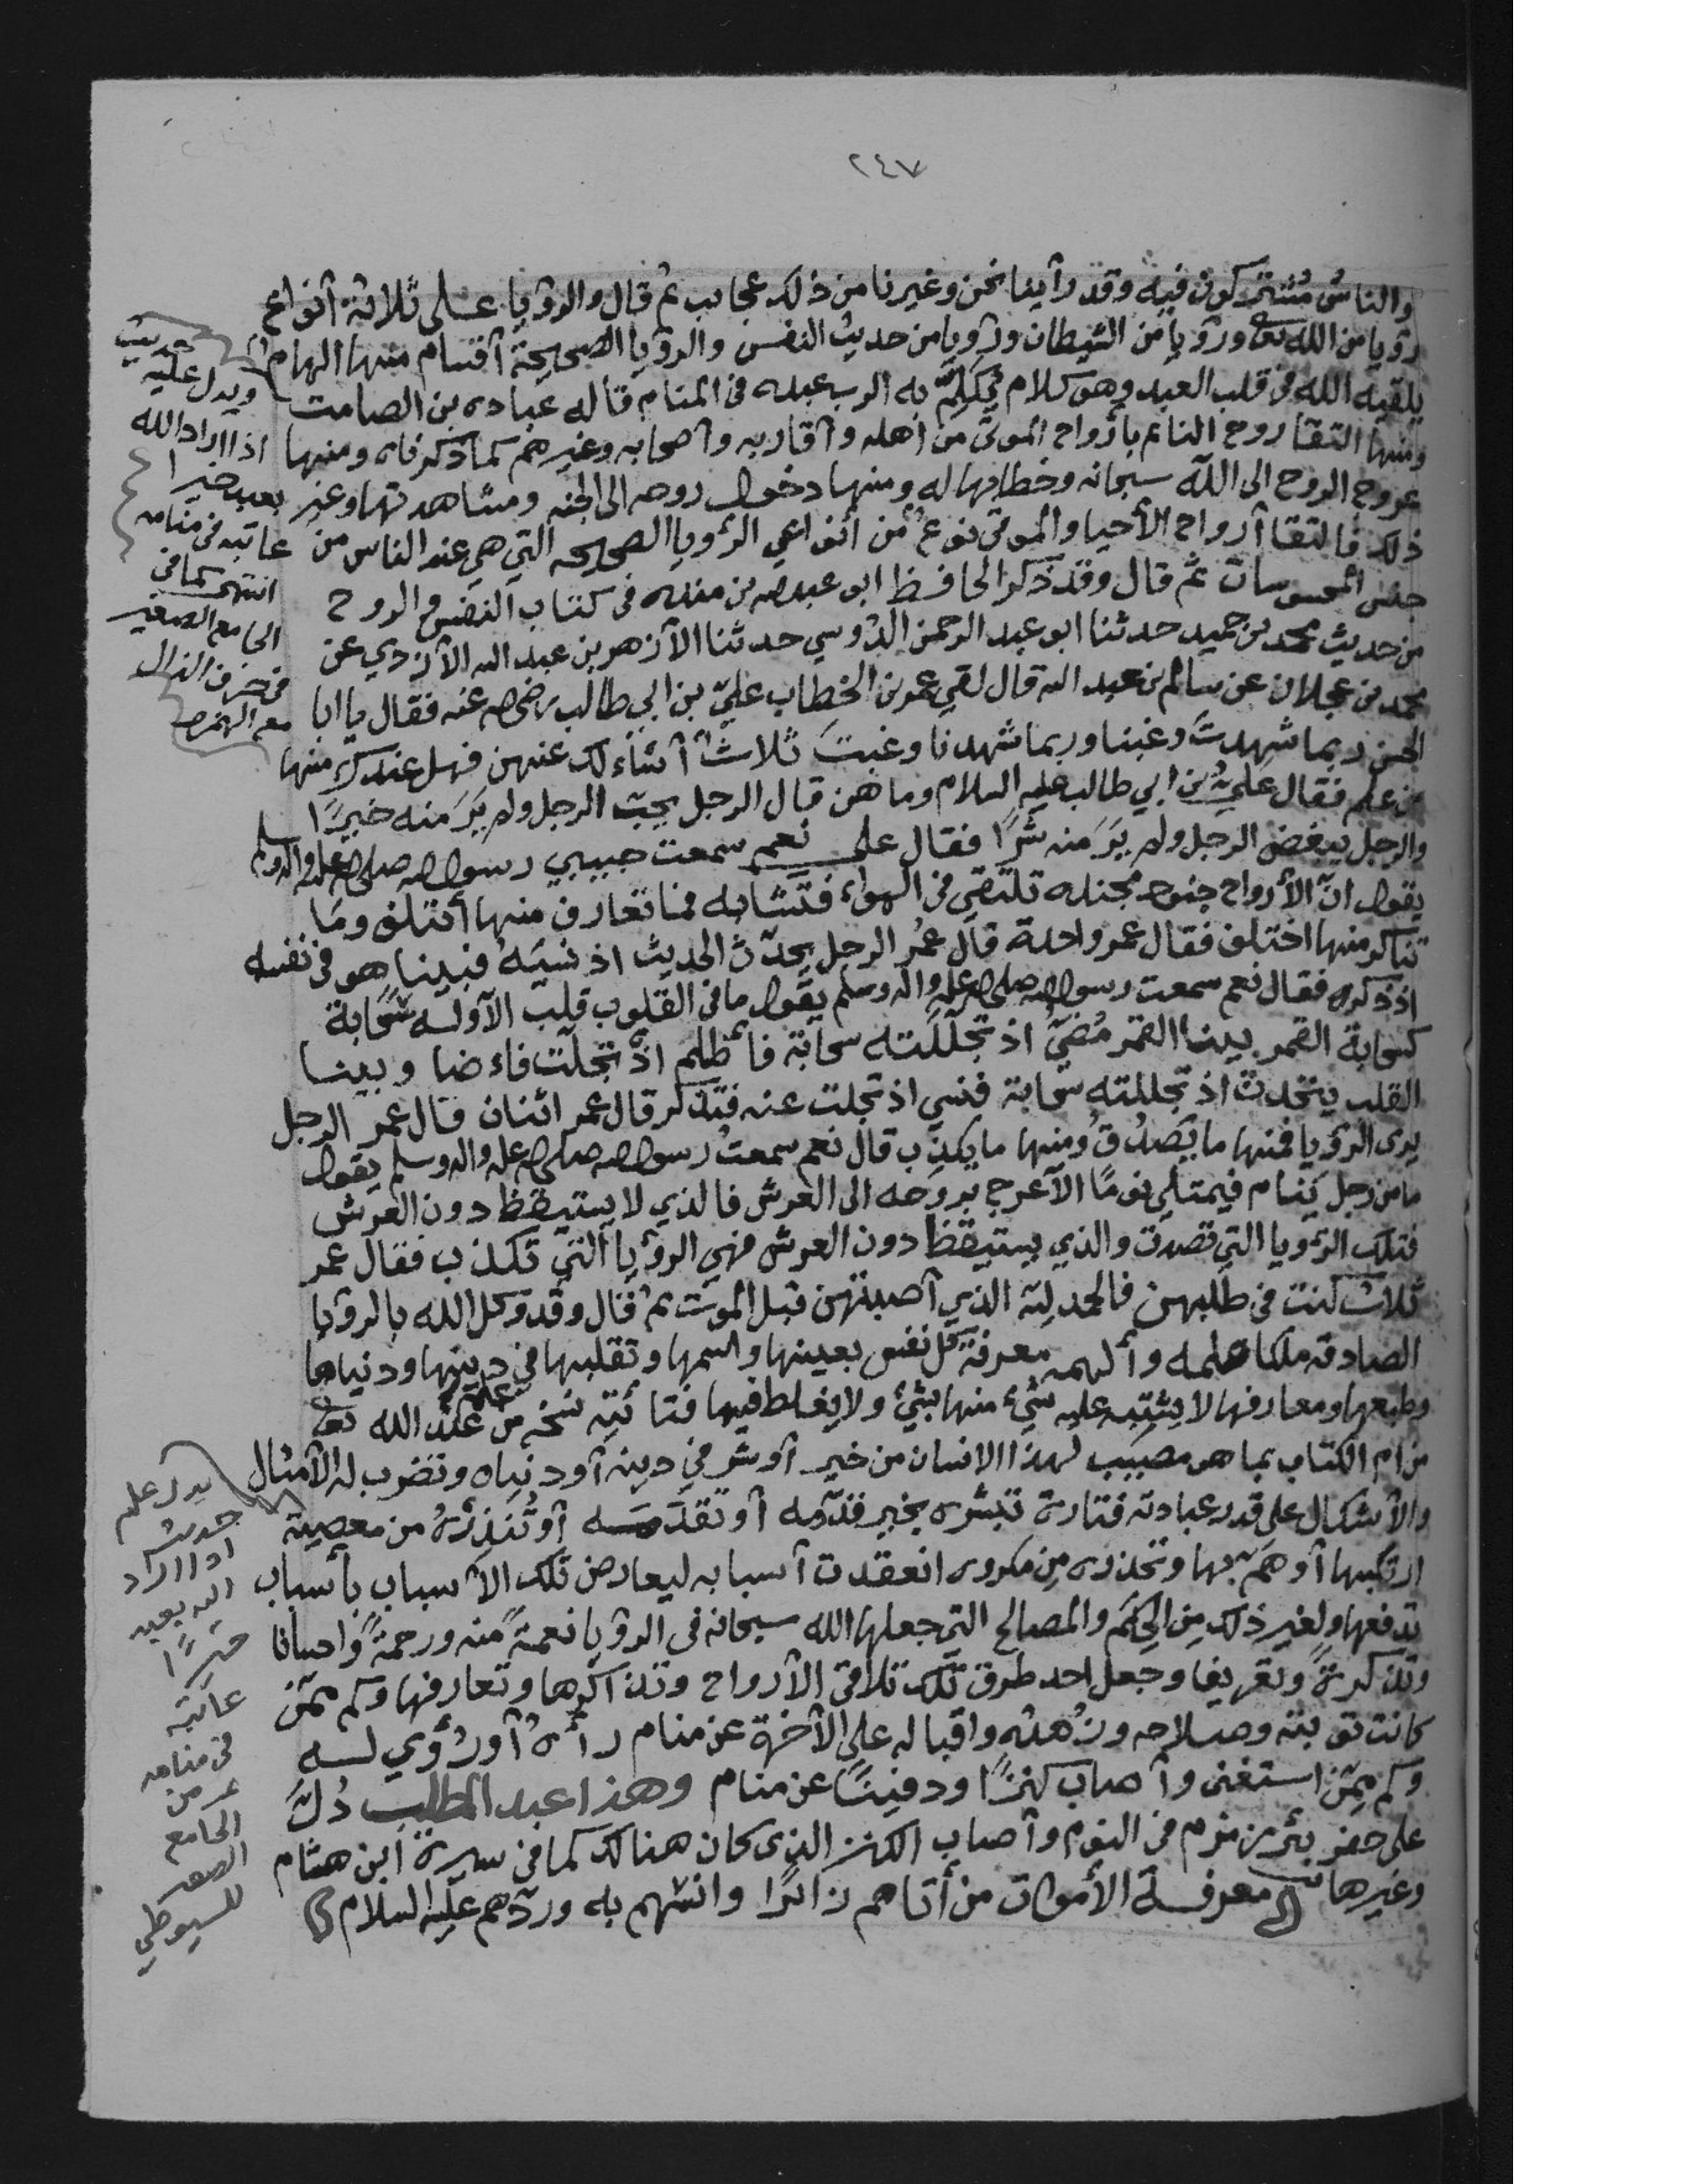 ٢٤٧
والناسُ مُشتركون فيه وقد رأينا نحن وغيرنا من ذلك عجايب ثم قال والرؤيا على ثلاثة أنواع
رؤيا من الله تعا ورؤيا من الشيطان ورؤيا من حديث النفس والرؤيا الصحيحة أقسام منها الهام
يلقيه الله في قلب العبد وهو كلام يُكَلِّمُ به الرب عبده في المنام قاله عباده بن الصامت
ومنها التقا روح النائم بأرواح الموتى من أهله وأقاربه وأصحابه وغيرهم كما ذكرناه ومنها
عروج الروح الى الله سبحانه وخطابها له ومنها دخول روحه الى الجنه ومشاهدتها وغير
ذلك فالتقا أرواح الأحيا والموتى نوعٌ من أنواع الرؤيا الصحيحه التي هي عند الناس من
جنس المحسوسات ثم قال وقد ذكر الحافظ ابو عبدالله بن منده في كتاب النفس والروح
من حديث محمد بن حميد حدثنا ابو عبد الرحمن الدَّوسي حدثنا الأزهر بن عبد الله الأزدي عن
محمد بن عجلان عن سالم بن عبد الله قال لقي عمر بن الخطاب عليّ بن ابي طالب رضي الله عنه فقال يا ابا
الحسن ربما شهدتَ وغبنا وربما شهدنا وغبتَ ثلاثٌ أسئلك عنهن فهل عندك منها
من علم فقال عليّ بن ابي طالب عليه السلام وما هن قال الرجل يحبّ الرجل ولم يَرَ منه خيرًا
والرجل يبغض الرجل ولم يَرَ منه شرًّا فقال علي نعم سمعت حبيبي رسول الله صلى الله عليه واله وسلم
يقول انّ الأرواح جنود مجنده تلتقي في الهواء فتشابه فما تعارف منها أئتلف وما
تناكر منها اختلف فقال عمر واحدة قال عمُر الرجل يحدّث الحديث اذ نسيَهُ فبينا هو في نفسه
اذ ذكره فقال نعم سمعت رسول الله صلى الله عليه واله وسلم يقول ما في القلوب قلب الا وله سحَابة
كسحابة القمر بينا القمر مُضيّ اذ تجلَّلَته سحَابَة فأظلم اذ تجلّت فاءضا وبينا
القلب يتحدث اذ تجللته سحابة فنسي اذ تجلت عنه فتذكر قال عمر اثنان قال عمر الرجل
يرى الرؤيا فمنها ما يَصدُقُ ومنها ما يكذب قال نعم سمعتُ رسول الله صلى الله عليه واله وسلم يقول
ما من رجل يَنام فيمتلي نومًا الا عرج بروحه الى العرش فالذي لا يستيقظ دون العرش
فتلك الرؤيا التي تصدق والذي يستيقظ دون العرش فهي الرؤيا التي تكذب فقال عمر
ثلاث كنت في طلبهن فالحمد لله الذي أصبتهن قبل الموت ثم قال وقد وكل الله بالرؤيا
الصادقه ملكا علمه وألهمه معرفة كل نفس بعينها واسمها وتقلبها في دينها ودنياها
وطبعها ومعارفها لا يشتبه عليه شيءٌ منها بشيءٍ ولا يغلط فيها فتأتيه نسخه من علم عند الله تعا
من ام الكتاب بما هو مصيب لهذا الانسان من خير أو شر في دينه أو دنياه وتضرب له الأمثال
والأشكال على قدر عبادته فتارة تبشره بخير قدّمه أو تقدَّمه أو تُنذرُهُ من معصية
ارتكبها أو همّ بها وتحذره مِن مكروه انعقدت أسبابه ليعارض تلك الأسباب بأسباب
تدفعها ولغير ذلك مِن الحِكَم والمصالح التي جعلها الله سبحانه في الرؤيا نعمةً منه ورحمةً واحسانا
وتذكرةً وتعريفا وجعل احد طرق تلك تلاقي الأرواح وتذاكرها وتعارفها وكم ممّن
كانت توبته وصلاحه وزُهدُه واقباله على الآخرة عن منام رأهُ أو رُؤي له
وكم مِمّن استغنى وأصاب كنزًا ودفينًا عن منام وهذا عبد المطلب دُلَّ
على حفر بئر زمزم في النوم وأصاب الكنز الذى كان هنالك كما في سيرة ابن هشام
وغيرها في معرفة الأموات من أتاهم زائرًا وانسهم به وردّهم عليه السلام
ويدل عليه حديث
اذا اراد الله
بعبد خيرا
عاتبه في منامه
انتهى كما في
الجامع الصغير
في حرف الذال
مع الهمزه
يدل عليه
حديث
اذا اراد
الله بعبد
خيرًا
عاتبه
في منامه
من
الجامع
الصغير
للسيوطي